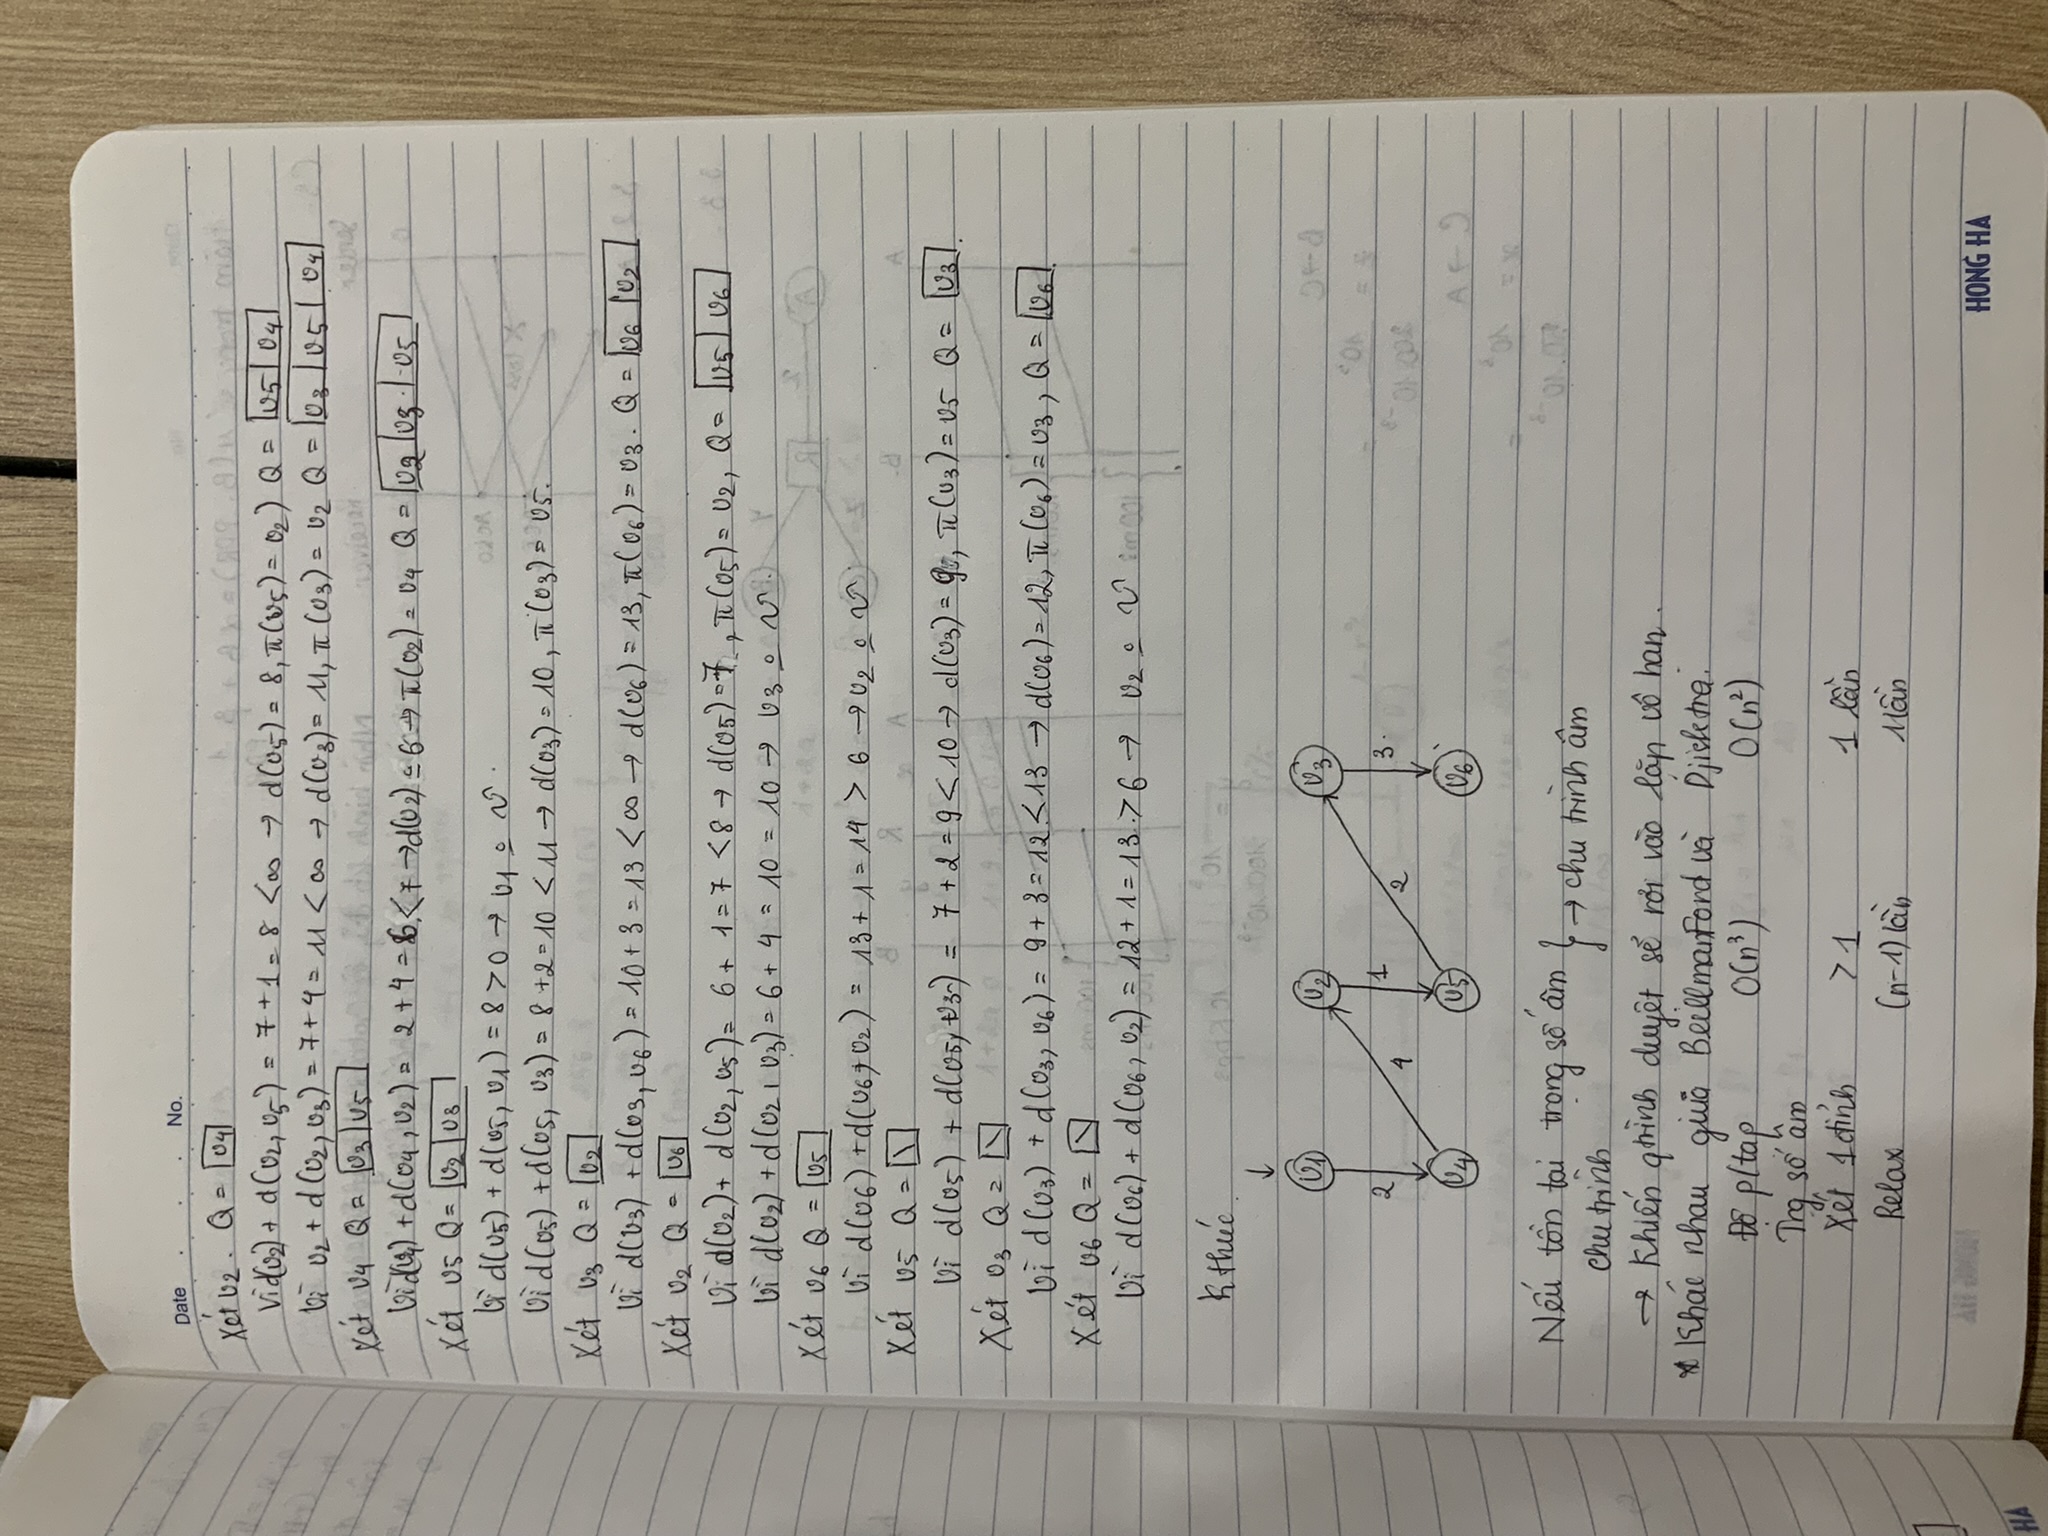 Date . . . No.
Xét v2. Q = v4
Vì d(v2) + d(v2, v5) = 7 + 1 = 8 < ∞ → d(v5) = 8, π(v5) = v2) Q = v5 | v4
Vì v2 + d(v2, v3) = 7 + 4 = 11 < ∞ → d(v3) = 11, π(v3) = v2 Q = v3 | v5 | v4
Xét v4 Q = v3 | v5
Vì d(v4) + d(v4, v2) = 2 + 4 = 6 < 7 → d(v2) = 6 → π(v2) = v4 Q = v2 | v3 | v5
Xét v5 Q = v2 | v3
Vì d(v5) + d(v5, v1) = 8 > 0 → v1
Vì d(v5) + d(v5, v3) = 8 + 2 = 10 < 11 → d(v3) = 10, π(v3) = v5.
Xét v3 Q = v2
Vì d(v3) + d(v3, v6) = 10 + 3 = 13 < ∞ → d(v6) = 13, π(v6) = v3. Q = v6 | v2
Xét v2 Q = v6
Vì d(v2) + d(v2, v5) = 6 + 1 = 7 < 8 → d(v5) = 7, π(v5) = v2, Q = v5 | v6
Vì d(v2) + d(v2, v3) = 6 + 4 = 10 = 10 → v3
Xét v6 Q = v5
Vì d(v6) + d(v6, v2) = 13 + 1 = 14 > 6 → v2
Xét v5 Q = \
Vì d(v5) + d(v5, v3) = 7 + 2 = 9 < 10 → d(v3) = 9, π(v3) = v5 Q = v3.
Xét v3 Q = \
Vì d(v3) + d(v3, v6) = 9 + 3 = 12 < 13 → d(v6) = 12, π(v6) = v3, Q = v6.
Xét v6 Q = \
Vì d(v6) + d(v6, v2) = 12 + 1 = 13 > 6 → v2
K thúc
↓
v1 v2 v3
2 4 1 2 3
v4 v5 v6
Nếu tồn tại trọng số âm
chu trình } → chu trình âm
→ Khiến qtrình duyệt sẽ rơi vào lặp vô hạn.
* Khác nhau giữa BeillmanFord và Djisktra.
Độ p/tạp O(n³) O(n²)
Trg số âm
Xét 1 đỉnh > 1 1 lần
Relax (n-1) lần 1 lần
HONG HA
HA